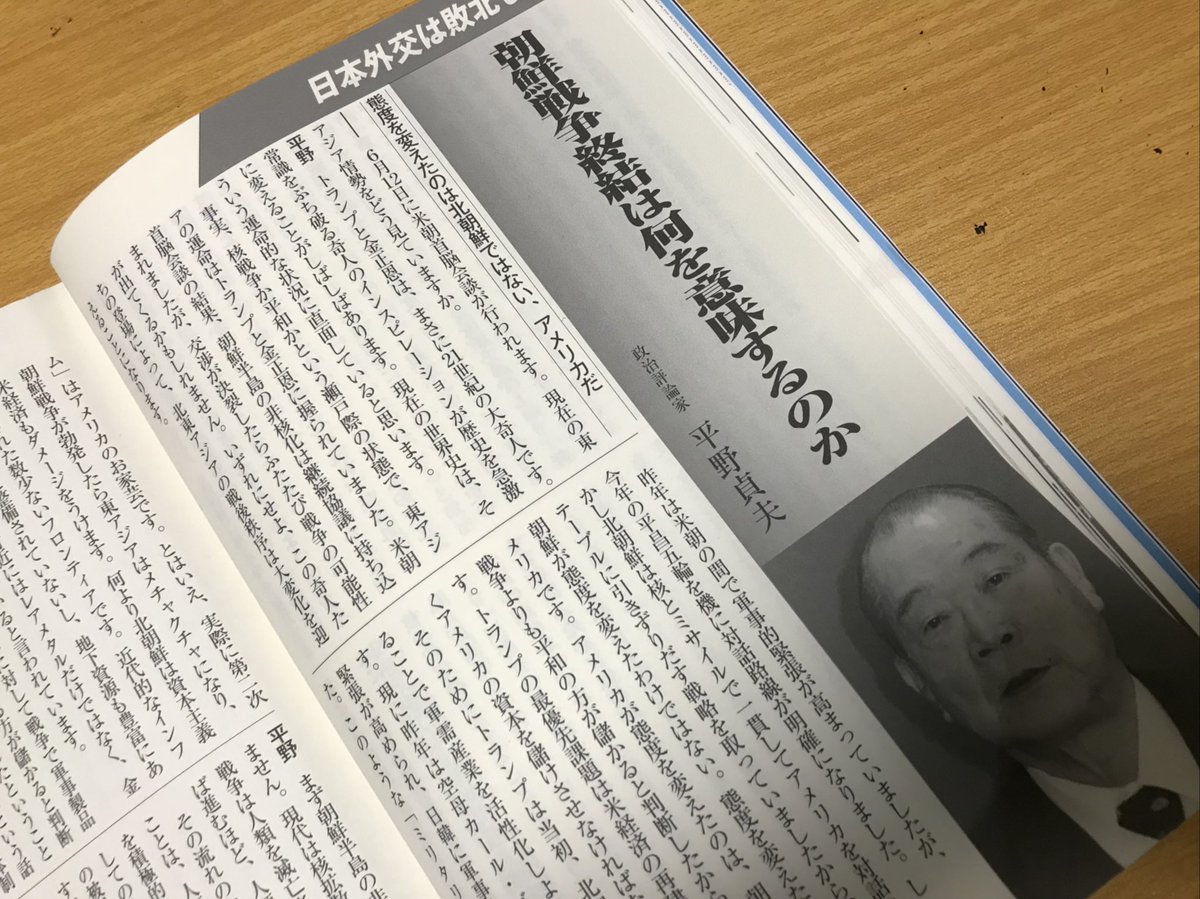 日本外交は敗北
朝鮮戦争終結は何を意味するのか
政治評論家 平野貞夫
態度を変えたのは北朝鮮ではない、アメリカだ
── 6月12日に米朝首脳会談が行われます。現在の東
アジア情勢をどう見ていますか。
平野 トランプと金正恩は、まさに21世紀の大奇人です。
常識をぶち破る奇人のインスピレーションが歴史を急激
に変えることがしばしばあります。現在の世界史は、そ
ういう運命的な状況に直面していると思います。
事実、核戦争か平和かという瀬戸際の状態で、東アジ
アの運命はトランプと金正恩に握られていました。米朝
首脳会談の結果、朝鮮半島の非核化は継続協議に持ち込
まれましたが、交渉が決裂したらふたたび戦争の可能性
が出てくるかもしれません。いずれにせよ、この奇人た
ちの登場によって、北東アジアの戦後秩序は大変化を迎
えることになります。
昨年は米朝の間で軍事的緊張が高まっていましたが、
今年の平昌五輪を機に対話路線が明確になりました。し
かし北朝鮮は核とミサイルで一貫してアメリカを対話
テーブルに引きずりだす戦略を取っていましたから、
朝鮮が態度を変えたわけではない。態度を変えた
メリカです。アメリカが態度を変えたのは、
戦争よりも平和の方が儲かると判断したから
す。トランプの最優先課題は米経済の再建
くアメリカの資本を儲けさせなければ
そのためにトランプは当初、北
ることで軍需産業を活性化しよ
す。現に昨年は空母カール・
緊張が高められ、日韓に軍事
た。このような「ミリタリ
ム」はアメリカのお家芸です。とはいえ、実際に第二次
朝鮮戦争が勃発したら東アジアはメチャクチャになり、
米経済もダメージをうけます。何より北朝鮮は資本主義
れた数少ないフロンティアです。近代的なインフ
整備されていないし、地下資源も豊富にあ
近にはレアメタルだけではなく、金
ると言われています。
に対して戦争で軍事製品
方が儲かると判断
たということ
平野 まず朝鮮半島の非
ません。現代は核拡散
戦争は人類を滅亡
ば進むほど、人
その流れの
ことは、人
を積極的
しての
の被
す